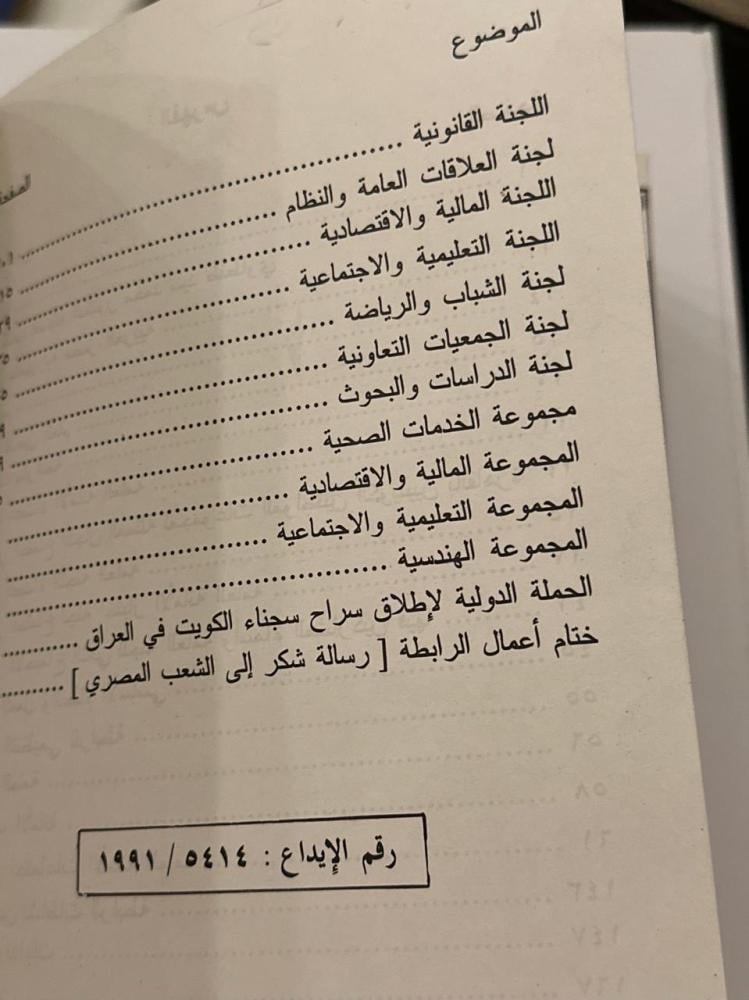 الموضوع
اللجنة القانونية
لجنة العلاقات العامة والنظام
اللجنة المالية والاقتصادية
اللجنة التعليمية والاجتماعية
لجنة الشباب والرياضة
لجنة الجمعيات التعاونية
لجنة الدراسات والبحوث
مجموعة الخدمات الصحية
المجموعة المالية والاقتصادية
المجموعة التعليمية والاجتماعية
المجموعة الهندسية
الحملة الدولية لإطلاق سراح سجناء الكويت في العراق
ختام أعمال الرابطة [ رسالة شكر إلى الشعب المصري ]
رقم الإيداع : ٥٤١٤ / ١٩٩١